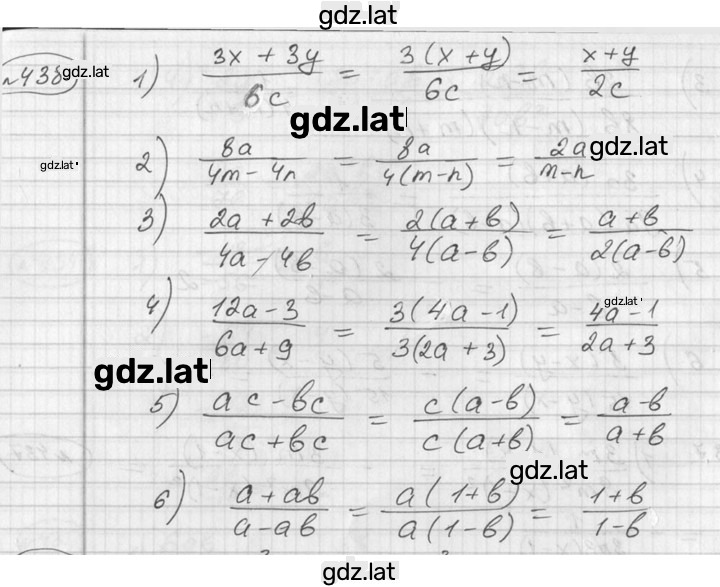 gdz.lat
№438 gdz.lat 1) (3x + 3y)/(6c) = (3(x+y))/(6c) = (x+y)/(2c)
gdz.lat
gdz.lat 2) (8a)/(4m-4n) = (8a)/(4(m-n)) = (2a)/(m-n) gdz.lat
3) (2a + 2b)/(4a - 4b) = (2(a+b))/(4(a-b)) = (a+b)/(2(a-b))
4) (12a-3)/(6a+9) = (3(4a-1))/(3(2a+3)) = (4a-1)/(2a+3) gdz.lat
gdz.lat
5) (ac-bc)/(ac+bc) = (c(a-b))/(c(a+b)) = (a-b)/(a+b)
gdz.lat
6) (a+ab)/(a-ab) = (a(1+b))/(a(1-b)) = (1+b)/(1-b)
gdz.lat